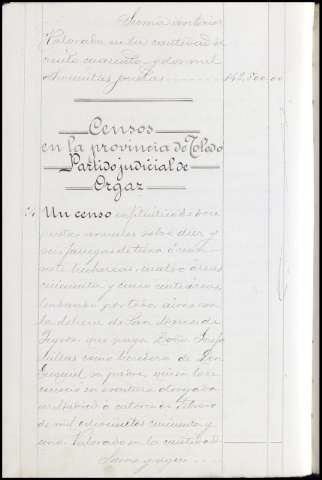 Suma anterior
Valorado en la cantidad de
ciento cuarenta y dos mil
ochocientas pesetas 142,800.00
Censos
en la provincia de Toledo
Partido judicial de
Orgaz
Un censo enfitéutico de doce
anuales sobre diez y
seis fanegas de tierra ó cuan-
cuatro áreas
cincuenta y cinco centiáreas
lindando por todos aires con
la dehesa de San Andres de
que paga Doña Josefa
como heredera de Don
Ezequiel su padre, quien lo re-
conoció en escritura otorgada
en Madrid á catorce de Febrero
de mil ochocientos cincuenta y
uno. Valorado en la cantidad
Suma y sigue